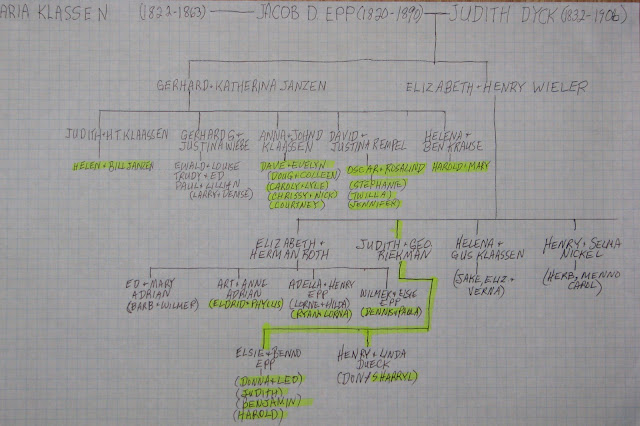 ARIA KLASSEN (1822-1863) JACOB D. EPP (1820-1890) JUDITH DYCK (1832-1906)
GERHARD + KATHERINA JANZEN ELIZABETH + HENRY WIELER
JUDITH + H.T. KLAASSEN
HELEN + BILL JANZEN
GERHARD G +
JUSTINA WIEBE
EWALD + LOUISE
TRUDY + ED
PAUL + LILLIAN
(LARRY + DENISE)
ANNA + JOHN D
KLAASSEN
DAVE + EVELYN
(DOUG + COLLEEN)
(CAROLY + LYLE)
(CHRISSY + NICK)
(COURTNEY)
DAVID +
JUSTINA REMPEL
OSCAR + ROSALIND
(STEPHANIE)
(TWILLA)
(JENNIFER)
HELENA +
BEN KRAUSE
HAROLD + MARY
ELIZABETH +
HERMAN ROTH
JUDITH + GEO.
RIEKMAN
HELENA +
GUS KLAASSEN
(JAKE, ELIZ +
VERNA)
HENRY + SELMA
NICKEL
(HERB, MENNO
CAROL)
ED + MARY
ADRIAN
(BARB + WILMER)
ART + ANNE
ADRIAN
(ELDRID + PHYLLIS)
ADELLA + HENRY
EPP
(LORNE + HILDA)
(RYAN + LORNA)
WILMER + ELSIE
EPP
(DENNIS + PAULA)
ELSIE + BENNO
EPP
(DONNA + LEO)
(JUDITH)
(BENJAMIN)
(HAROLD)
HENRY + LINDA
DUECK
(DON + SHARRYL)